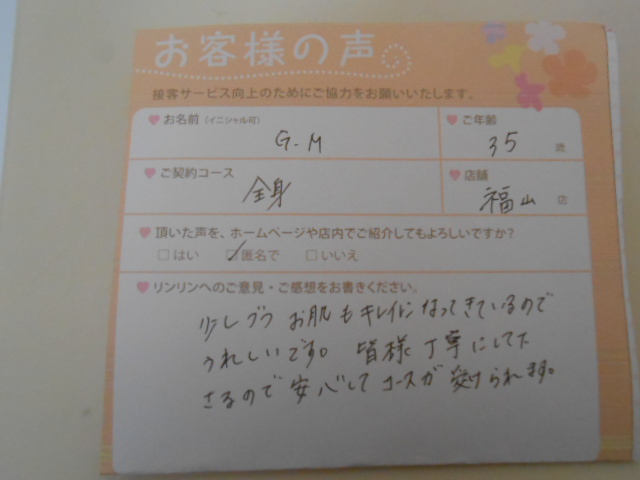 お客様の声
接客サービス向上のためにご協力をお願いいたします。
お名前（イニシャル可）
G-M
ご年齢
35 歳
ご契約コース
全身
店舗
福山 店
頂いた声を、ホームページや店内でご紹介してもよろしいですか？
□はい ☑匿名で □いいえ
リンリンへのご意見・ご感想をお書きください。
少しづつ お肌もキレイになってきているので
うれしいです。皆様丁寧にして下
さるので安心してコースが受けられます。